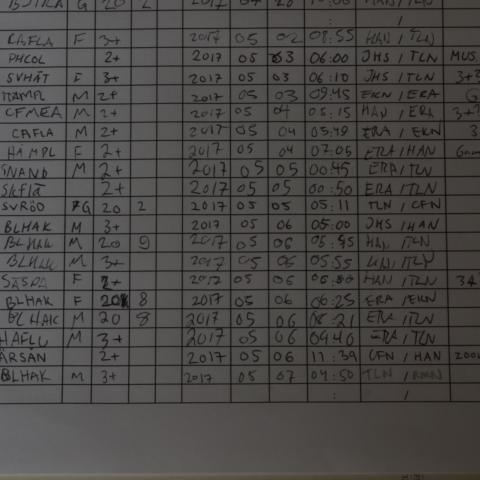 F 3+ 2017 05 02 08:55 HAN/TLN
PHCOL 2+ 2017 05 03 06:00 JHS/TLN MUS
SVHÄT F 3+ 2017 05 03 06:10 JHS/TLN
M 2+ 2017 05 03 09:45 EKN/ERA
CFMEA M 2+ 2017 05 04 05:15 HAN/ERA
CAFLA M 2+ 2017 05 04 05:48 ERA/EKN 3
HÄMPL F 2+ 2017 05 04 07:05 ERA/HAN
M 2+ 2017 05 05 00:45 ERA/TLN
2+ 2017 05 05 00:50 ERA/TLN
SVRÖD G 20 2 2017 05 05 05:11 TLN/CFN
BLHAK M 3+ 2017 05 06 05:00 JHS/HAN
BLHAK M 20 9 2017 05 06 HAN/TLN
BLHAK M 3+ 2017 05 06 05:55 HAN/TLN
F 2+ 2017 05 06 HAN/TLN
BLHAK F 20 8 2017 05 06 06:25 ERA/EKN
BLHAK M 20 8 2017 05 06 ERA/TLN
HAFLU M 3+ 2017 05 06 09:40 ERA/TLN
ÄRSÅN 2+ 2017 05 06 11:39 CFN/HAN
BLHAK M 3+ 2017 05 07 04:50 TLN/RMN